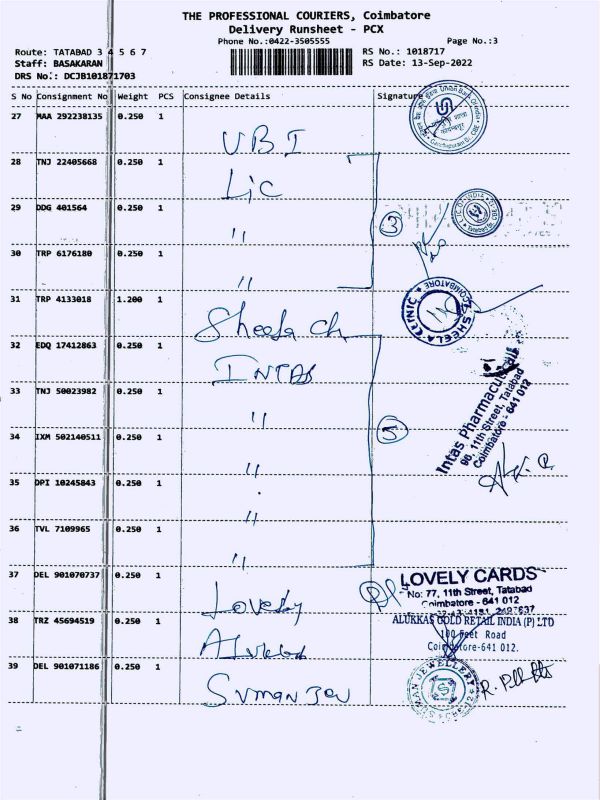 THE PROFESSIONAL COURIERS, Coimbatore
Delivery Runsheet - PCX
Phone No.:0422-3505555 Page No.:3
Route: TATABAD 3 4 5 6 7 RS No.: 1018717
Staff: BASAKARAN RS Date: 13-Sep-2022
DRS No.: DCJB101871703
S No Consignment No Weight PCS Consignee Details Signature
27 MAA 292238135 0.250 1
UBI
28 TNJ 22405668 0.250 1
Lic
29 DDG 401564 0.250 1
" 3
30 TRP 6176180 0.250 1
"
31 TRP 4133018 1.200 1
Sheela
SHEELA CLINIC COIMBATORE
32 EDQ 17412863 0.250 1
INTAS
33 TNJ 50023982 0.250 1
" 5
34 IXM 502140511 0.250 1
"
35 DPI 10245843 0.250 1
"
36 TVL 7109965 0.250 1
"
Intas
96, 11th Street, Tatabad
Coimbatore - 641 012
37 DEL 901070737 0.250 1
Lovely
LOVELY CARDS
No: 77, 11th Street, Tatabad
Coimbatore - 641 012
38 TRZ 45694519 0.250 1
ALUKKAS GOLD RETAIL INDIA (P) LTD
100 Feet Road
Coimbatore-641 012.
39 DEL 901071186 0.250 1
Suman Jew
SUMAN JEWELLERY